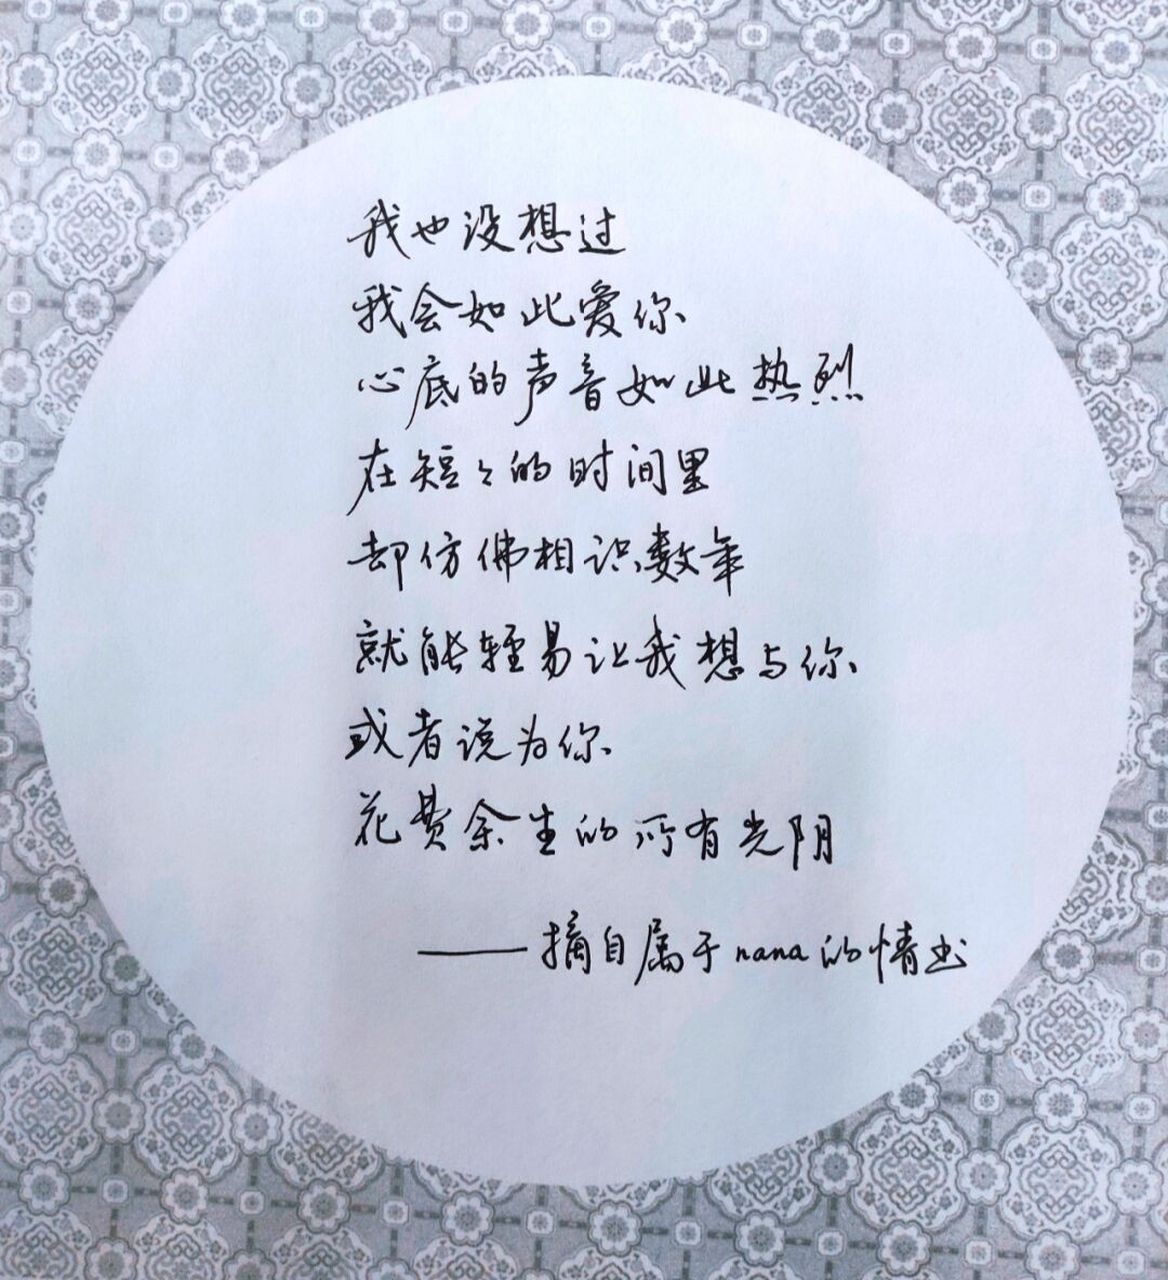 我也没想过
我会如此爱你
心底的声音如此热烈
在短々的时间里
却仿佛相识数年
就能轻易让我想与你
或者说为你
花费余生的所有光阴
——摘自属于nana的情书